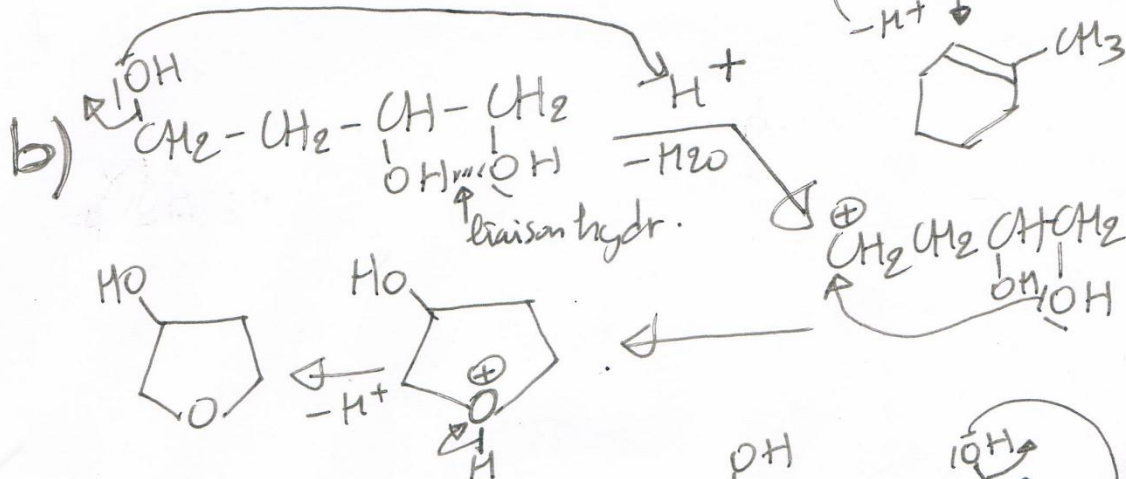 -H+
CH3
b) |OH H+
CH2-CH2-CH-CH2
OH OH
-H2O
liaison hydr.
⊕
CH2CH2CHCH2
OH |OH
HO HO
⊕
O O
-H+
H
OH |OH